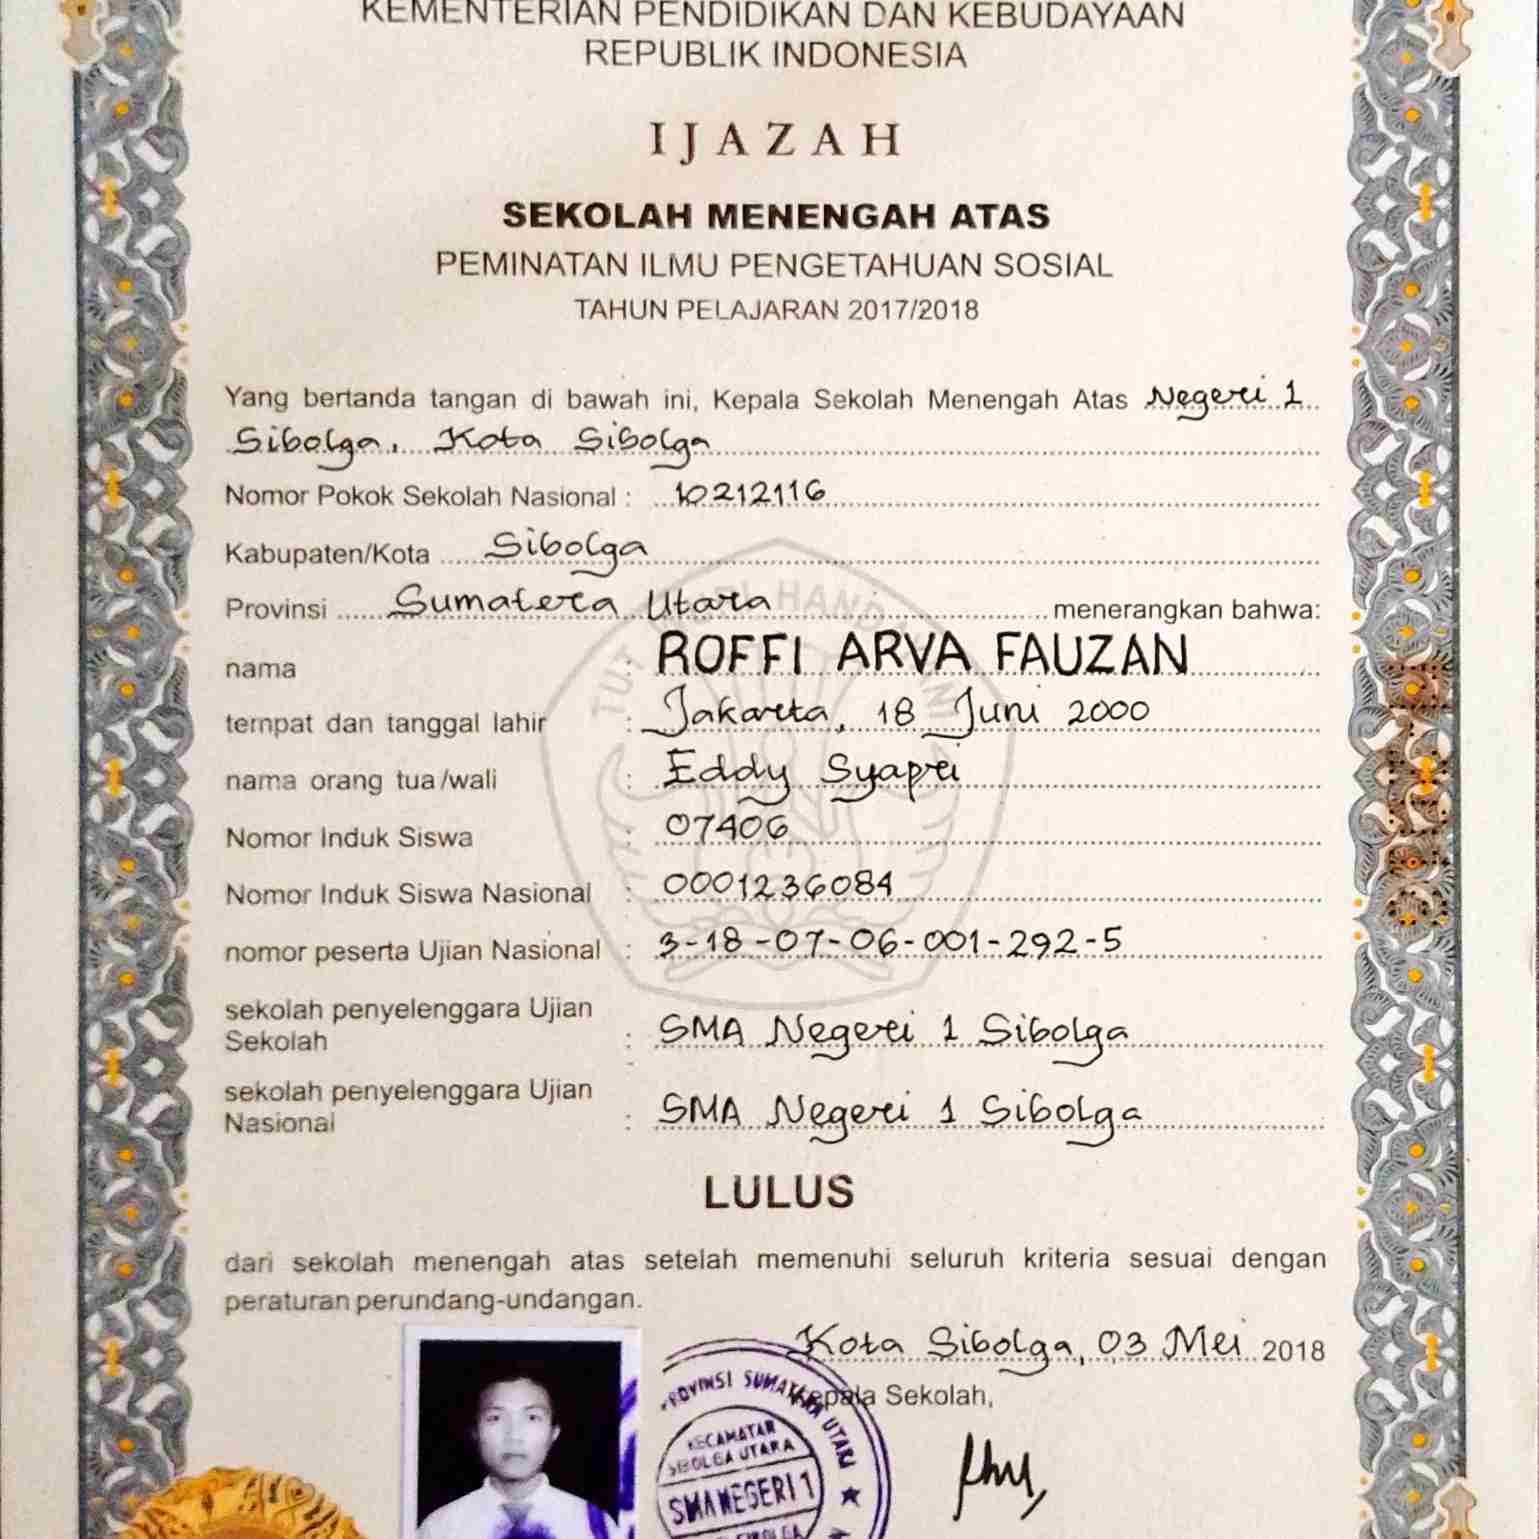 KEMENTERIAN PENDIDIKAN DAN KEBUDAYAAN
REPUBLIK INDONESIA
IJAZAH
SEKOLAH MENENGAH ATAS
PEMINATAN ILMU PENGETAHUAN SOSIAL
TAHUN PELAJARAN 2017/2018
Yang bertanda tangan di bawah ini, Kepala Sekolah Menengah Atas Negeri 1
Sibolga, Kota Sibolga
Nomor Pokok Sekolah Nasional : 10212116
Kabupaten/Kota Sibolga
Provinsi Sumatera Utara menerangkan bahwa:
nama : ROFFI ARVA FAUZAN
tempat dan tanggal lahir : Jakarta, 18 Juni 2000
nama orang tua/wali : Eddy Syapri
Nomor Induk Siswa : 07406
Nomor Induk Siswa Nasional : 0001236084
nomor peserta Ujian Nasional : 3-18-07-06-001-292-5
sekolah penyelenggara Ujian
Sekolah : SMA Negeri 1 Sibolga
sekolah penyelenggara Ujian
Nasional : SMA Negeri 1 Sibolga
LULUS
dari sekolah menengah atas setelah memenuhi seluruh kriteria sesuai dengan
peraturan perundang-undangan.
Kota Sibolga, 03 Mei 2018
Kepala Sekolah,
PROVINSI SUMATARA UTARA
KECAMATAN
SIBOLGA UTARA
SMA NEGERI 1
SIBOLGA